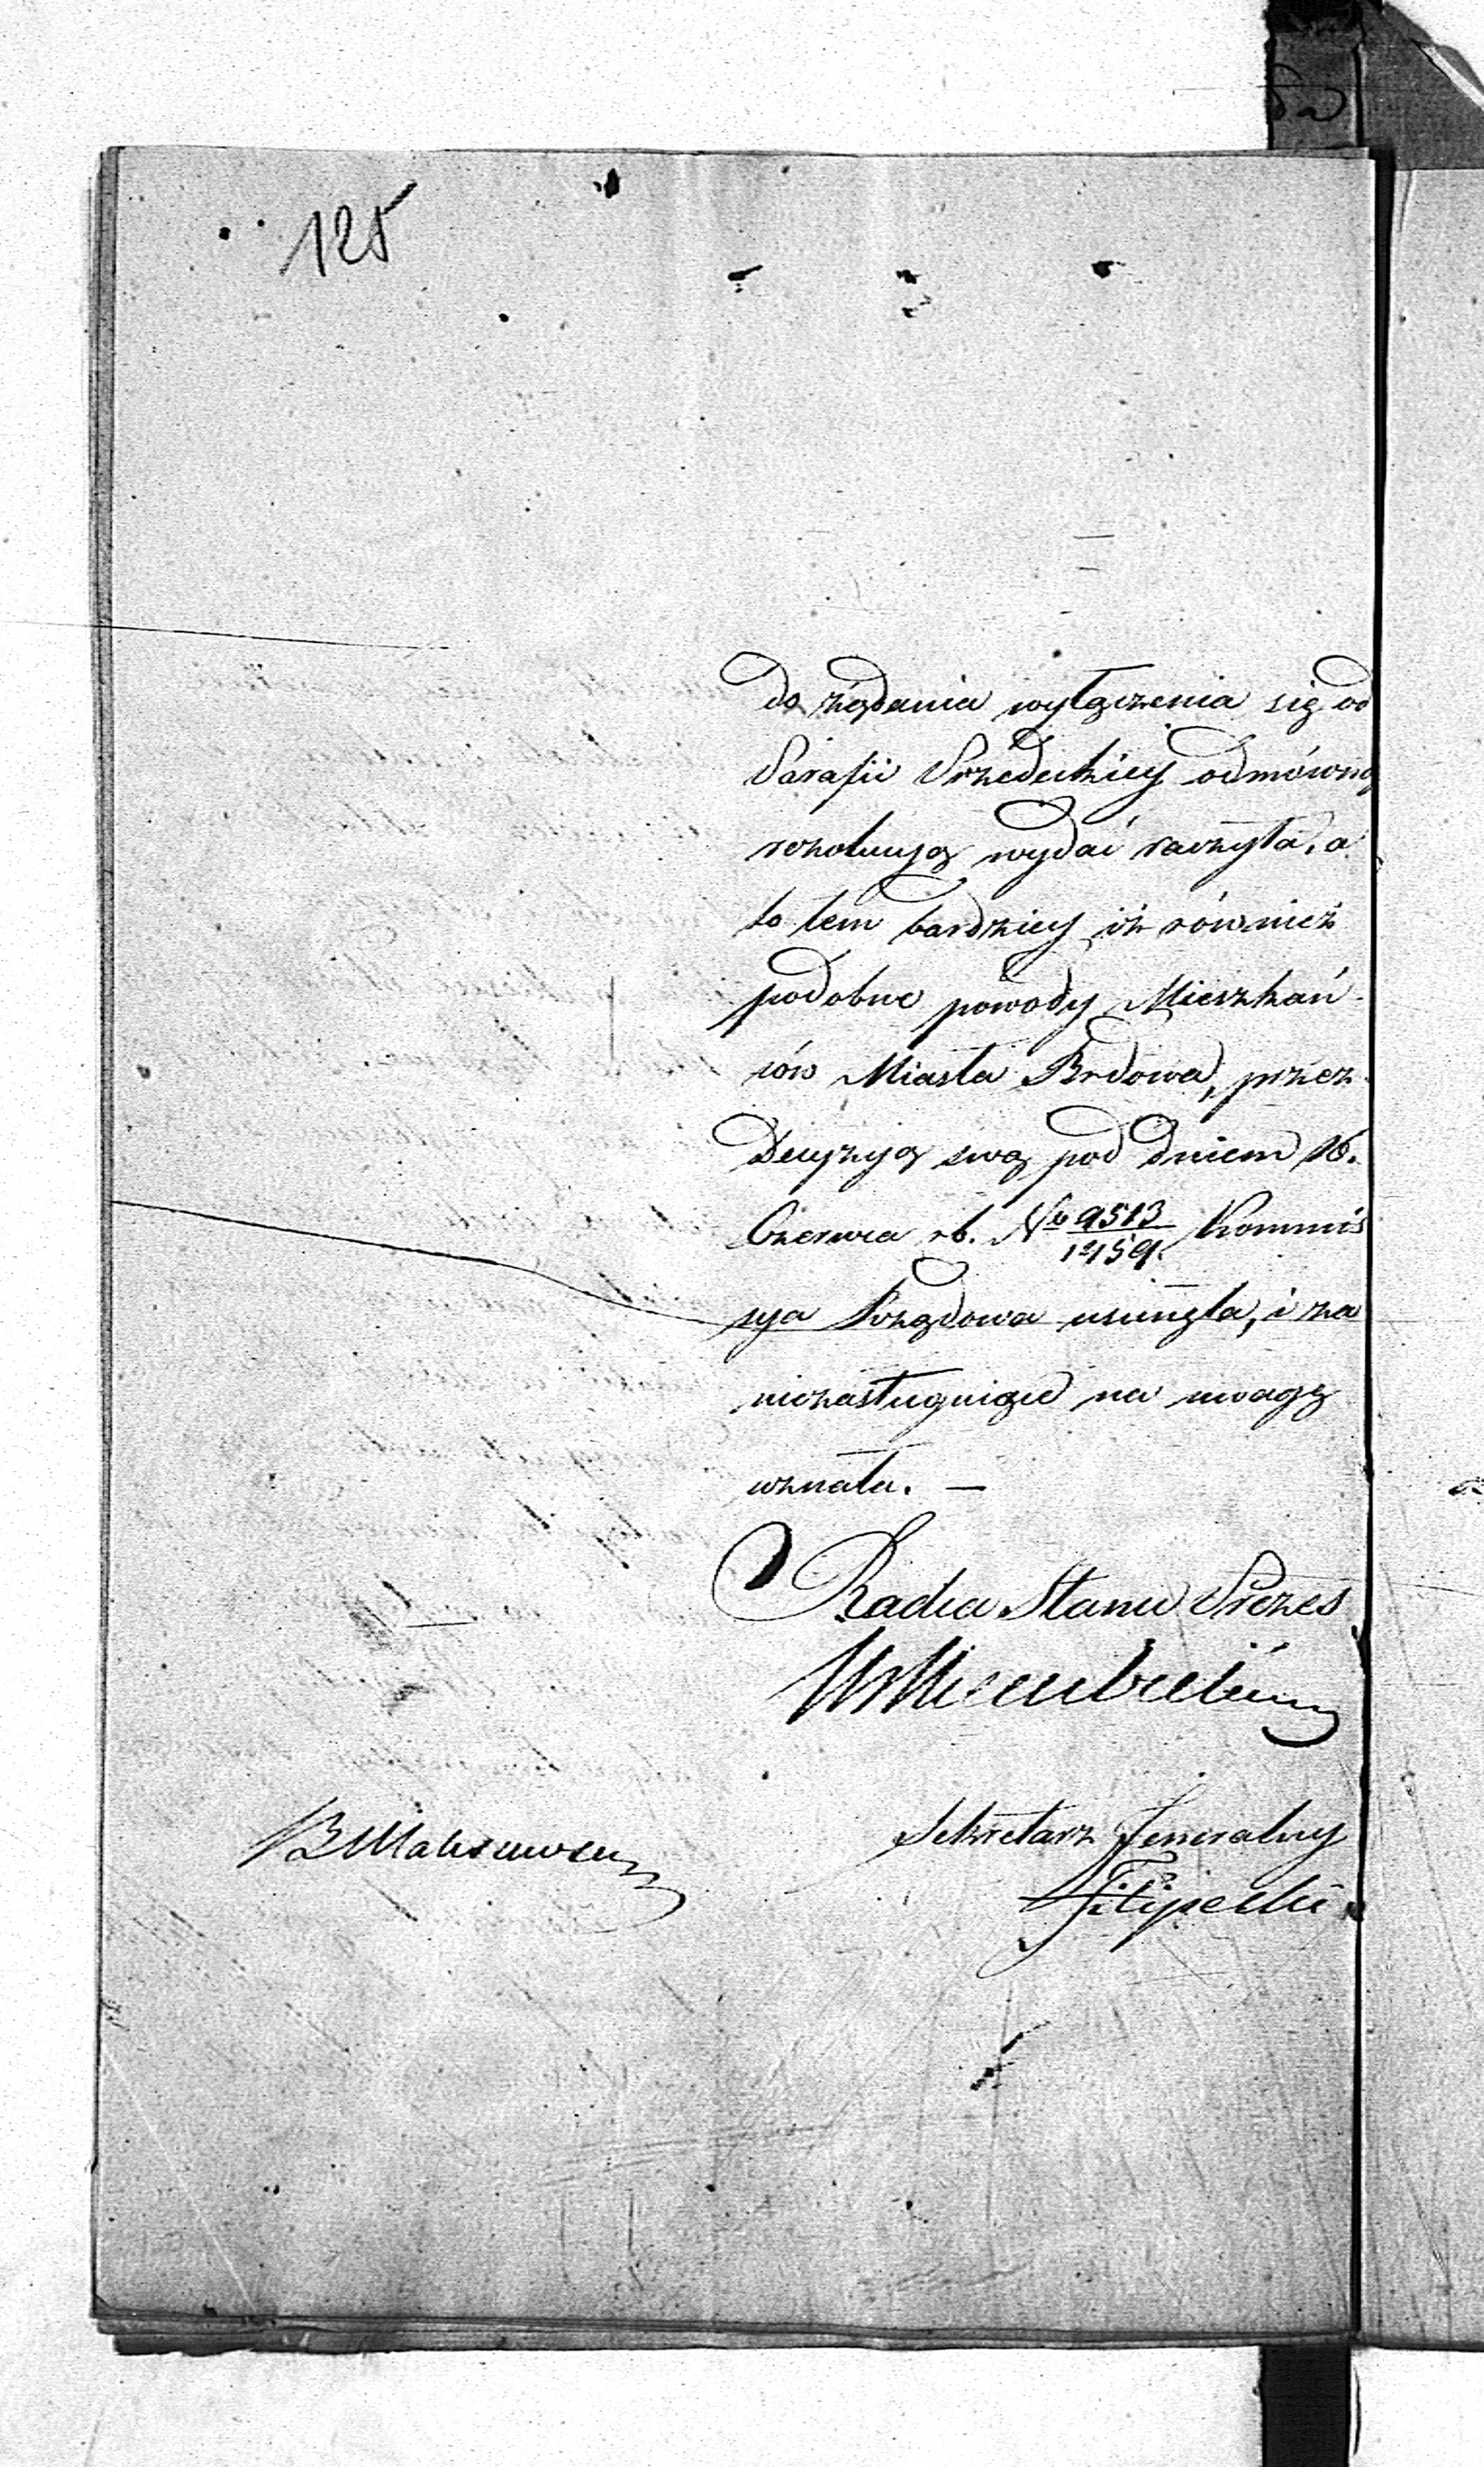 125
do żądania wyłączenia się od
Parafii Przedeckiey odmówną
rezolucyą wydać raczyła, a
to tem bardziey iż również
podobne powody Mieszkań-
ców Miasta Brdowa, przez
Decyzyą swą pod dniem 16.
Czerwca rb. No 9513/12159. Kommis
sya Rządowa usunęła, i za
niezasługuiące na uwagę
uznała. —
Radca Stanu Prezes
Sekretarz Jeneralny
Filipecki